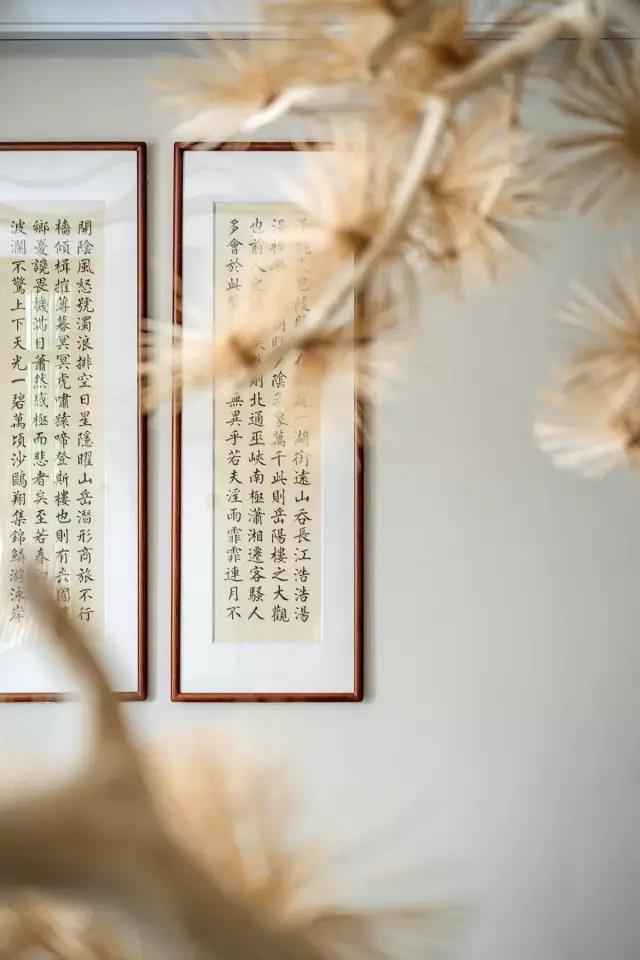 巴陵一湖銜遠山吞長江浩浩湯
陰象萬千此則岳陽樓之大觀
也前人之則北通巫峽南極瀟湘遷客騷人
多會於此無異乎若夫淫雨霏霏連月不
開陰風怒號濁浪排空日星隱曜山岳潛形商旅不行
檣傾楫摧薄暮冥冥虎嘯猿啼登斯樓也則有去國
鄉憂讒畏譏滿目蕭然感極而悲者矣至若春
波瀾不驚上下天光一碧萬頃沙鷗翔集錦鱗游泳岸